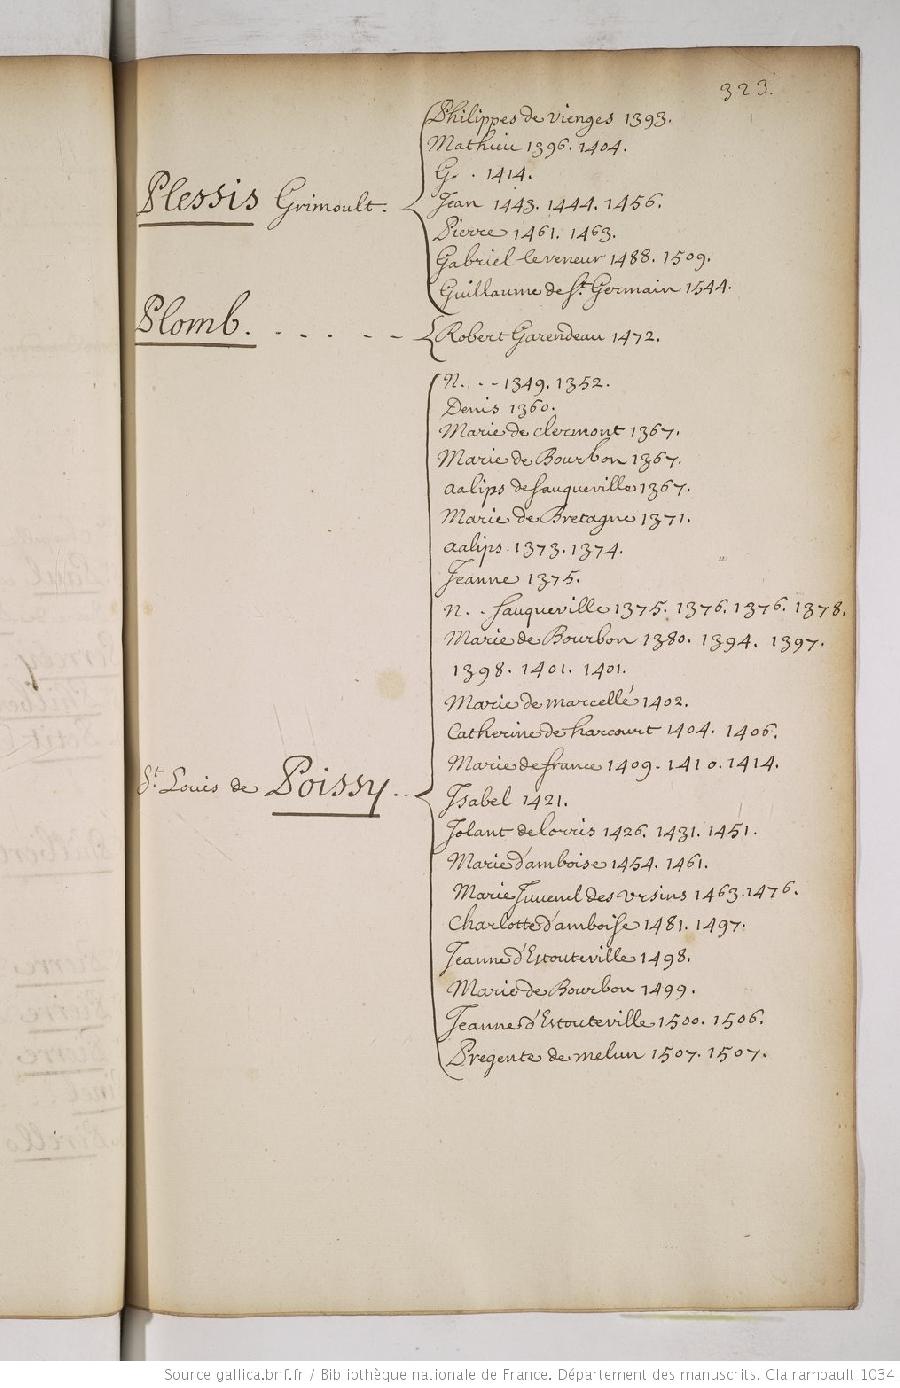 323.
Plessis Grimoult.
Philippes de Vienges 1393.
Mathieu 1396. 1404.
G. . 1414.
Jean 1443. 1444. 1456.
Pierre 1461. 1463.
Gabriel leveneur 1488. 1509.
Guillaume de St. Germain 1544.
Plomb. . . . . . .
Robert Garendeau 1472.
St. Louis de Poissy . .
N. . - - 1349. 1352.
Denis 1360.
Marie de clermont 1367.
Marie de Bourbon 1367.
aalips de sauqueville 1367.
Marie de Bretagne 1371.
aalips 1373. 1374.
Jeanne 1375.
N. . sauqueville 1375. 1376. 1376. 1378.
Marie de Bourbon 1380. 1394. 1397.
1398. 1401. 1401.
Marie de marcellé 1402.
Catherine de harcourt 1404. 1406.
Marie de france 1409. 1410. 1414.
Isabel 1421.
Jolant de lorris 1426. 1431. 1451.
Marie d'amboise 1454. 1461.
Marie Juvenel des Ursins 1463. 1476.
Charlotte d'amboise 1481. 1497.
Jeanne d'Estouteville 1498.
Marie de Bourbon 1499.
Jeanne d'Estouteville 1500. 1506.
Pregente de melun 1507. 1507.
Source gallica.bnf.fr / Bibliothèque nationale de France. Département des manuscrits. Clairambault 1034